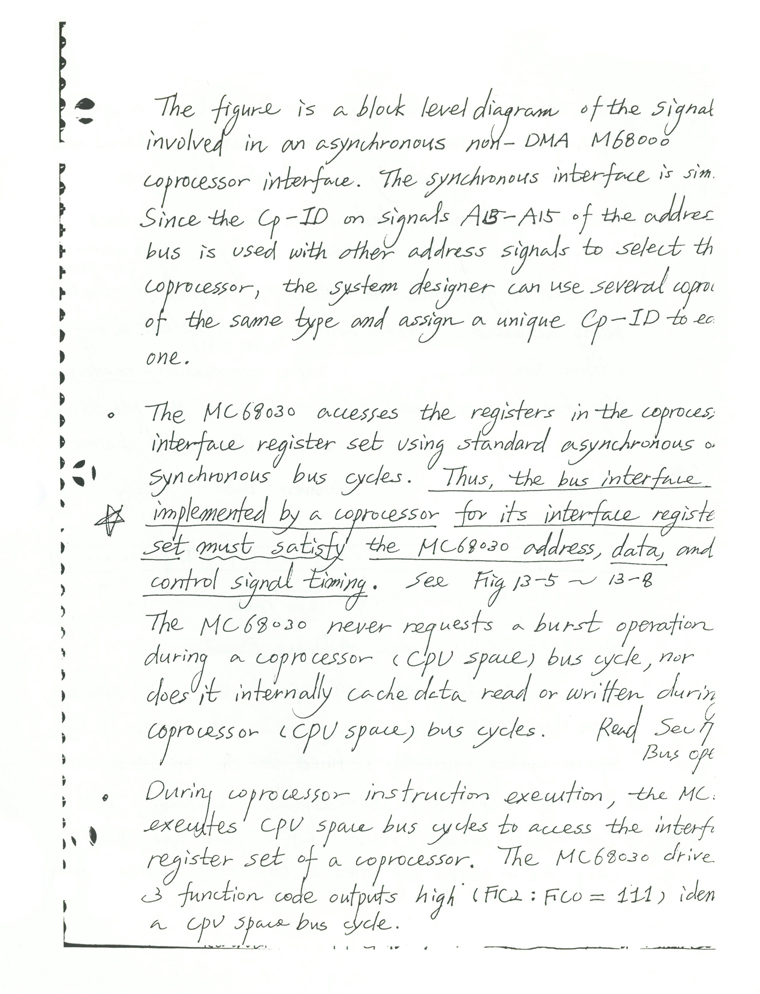 The figure is a block level diagram of the signal
involved in an asynchronous non-DMA M68000
coprocessor interface. The synchronous interface is sim.
Since the Cp-ID on signals A13-A15 of the addres
bus is used with other address signals to select th
coprocessor, the system designer can use several copro
of the same type and assign a unique Cp-ID to ea
one.
The MC68030 accesses the registers in the coproces
interface register set using standard asynchronous o
synchronous bus cycles. Thus, the bus interface
implemented by a coprocessor for its interface registe
set must satisfy the MC68030 address, data, and
control signal timing. See Fig 13-5 ~ 13-8
The MC68030 never requests a burst operation
during a coprocessor (CPU space) bus cycle, nor
does it internally cache data read or written during
coprocessor (CPU space) bus cycles. Read Sec 7
Bus ope
During coprocessor instruction execution, the MC
executes CPU space bus cycles to access the interfa
register set of a coprocessor. The MC68030 drive
3 function code outputs high (FC2:FC0=111) iden
a CPU space bus cycle.